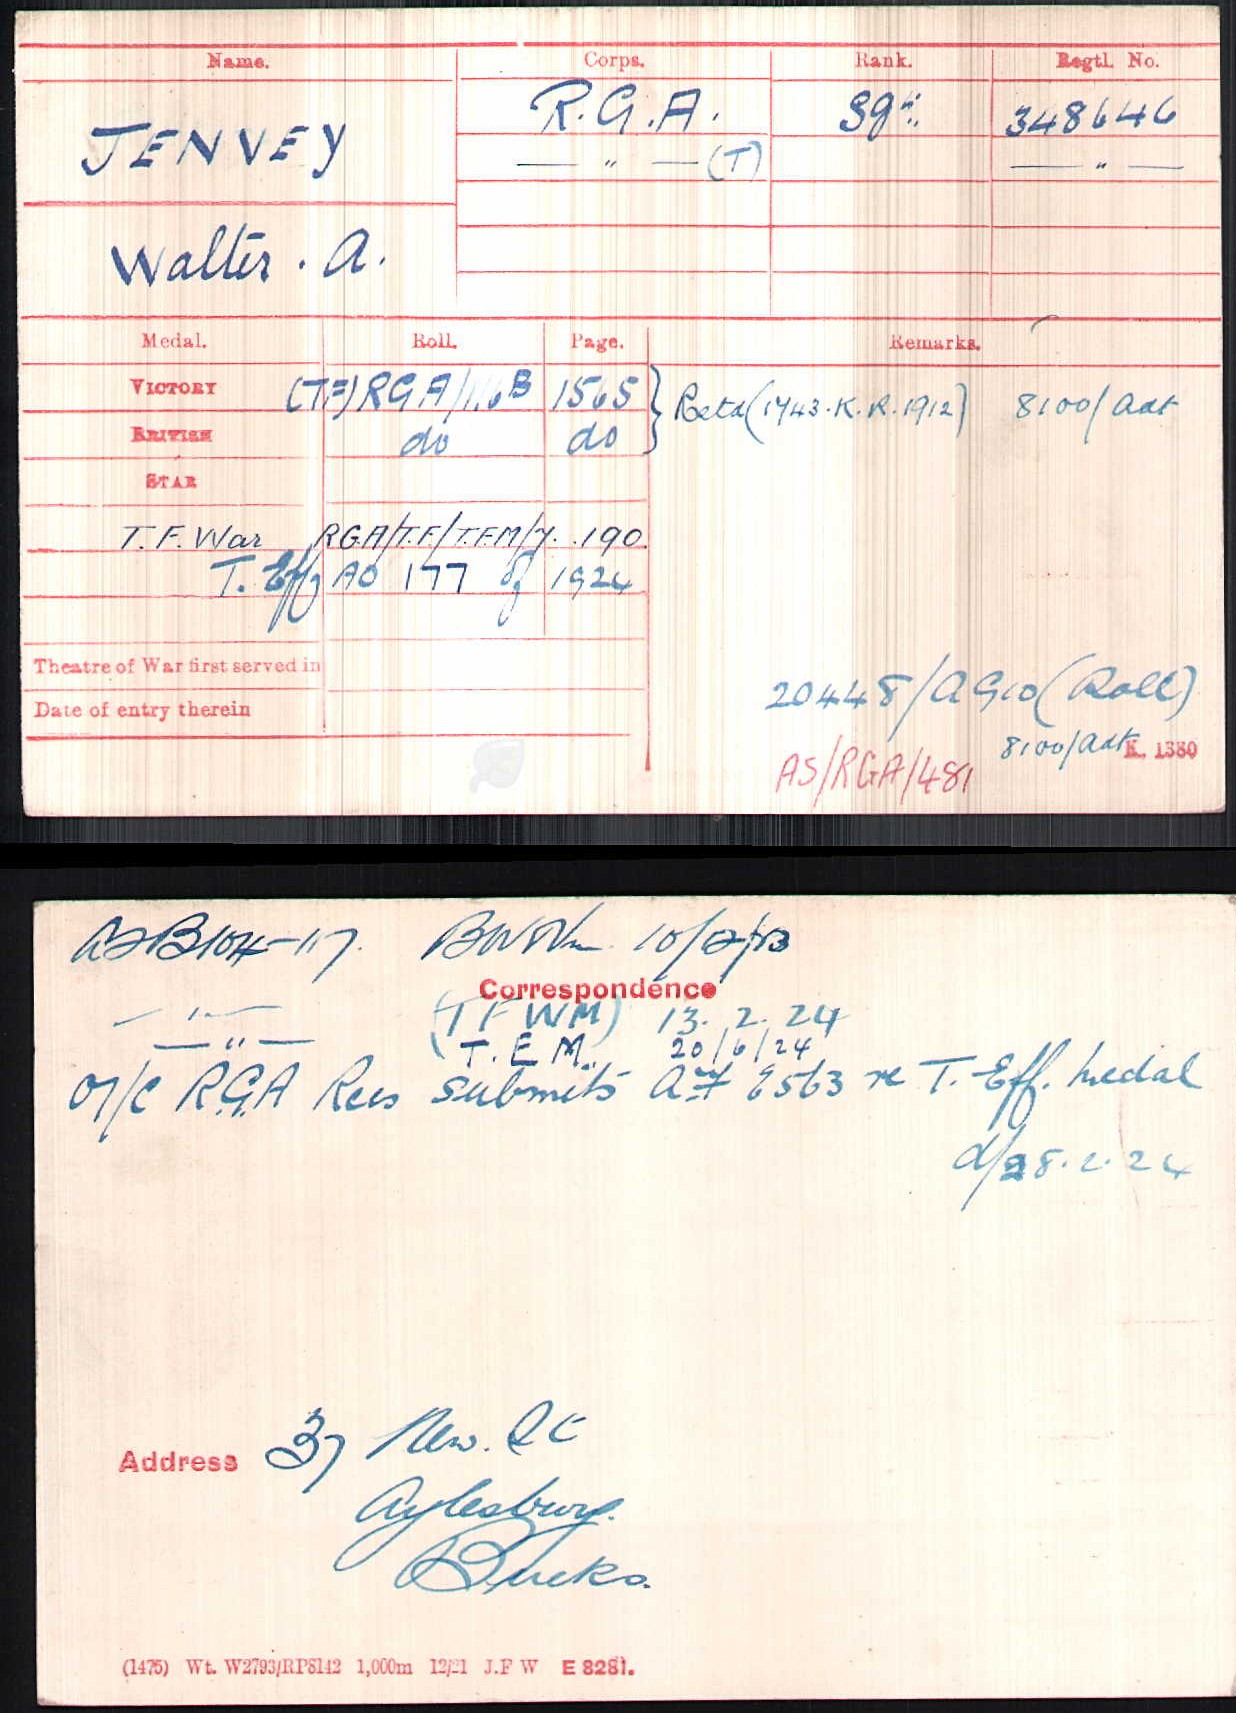 Name. Corps. Rank. Regtl. No.
JENVEY R.G.A. Sgt. 348646
— " — (T) — " —
Walter. A.
Medal. Roll. Page. Remarks.
VICTORY (TF) RGA/116B 1565 } Retd (1743.K.R.1912) 8100/Adt
BRITISH do do
STAR
T.F. War RGA/T.F/T.F.M/7. 190.
T. Eff AO 177 of 1924
Theatre of War first served in
Date of entry therein
20448/AG10 (Roll)
8100/Adt K. 1380
AS/RGA/481
B104-117. 10/
Correspondence
— " — (TFWM) 13.2.24
— " — (T.E.M. 20/6/24
O/c R.G.A Recs submits re T. Eff. medal
d/28.2.24
Address 37 New. St
Aylesbury.
Bucks.
(1475) Wt. W2793/RP8142 1,000m 12/21 J.F W E 8281.